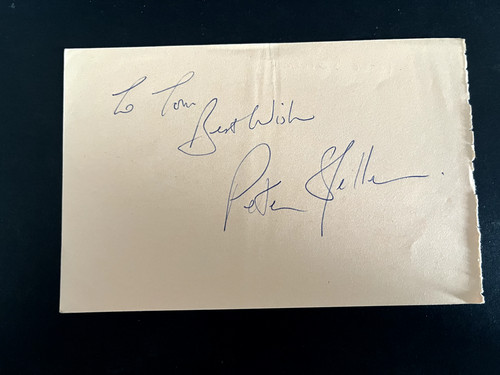 To Tom
Best Wish
Peter Sellers.